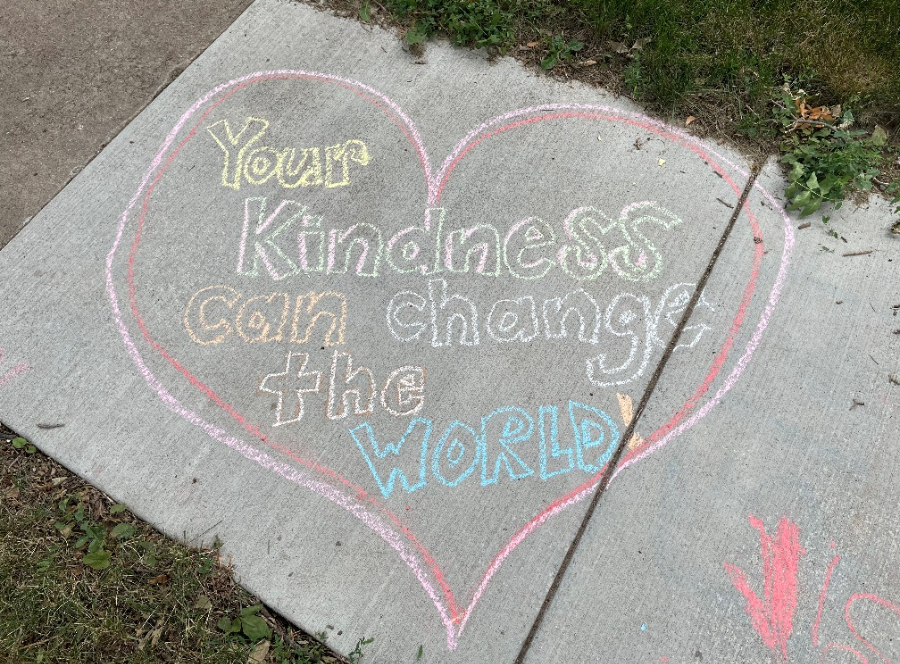 Your
Kindness
can change
the
WORLD!